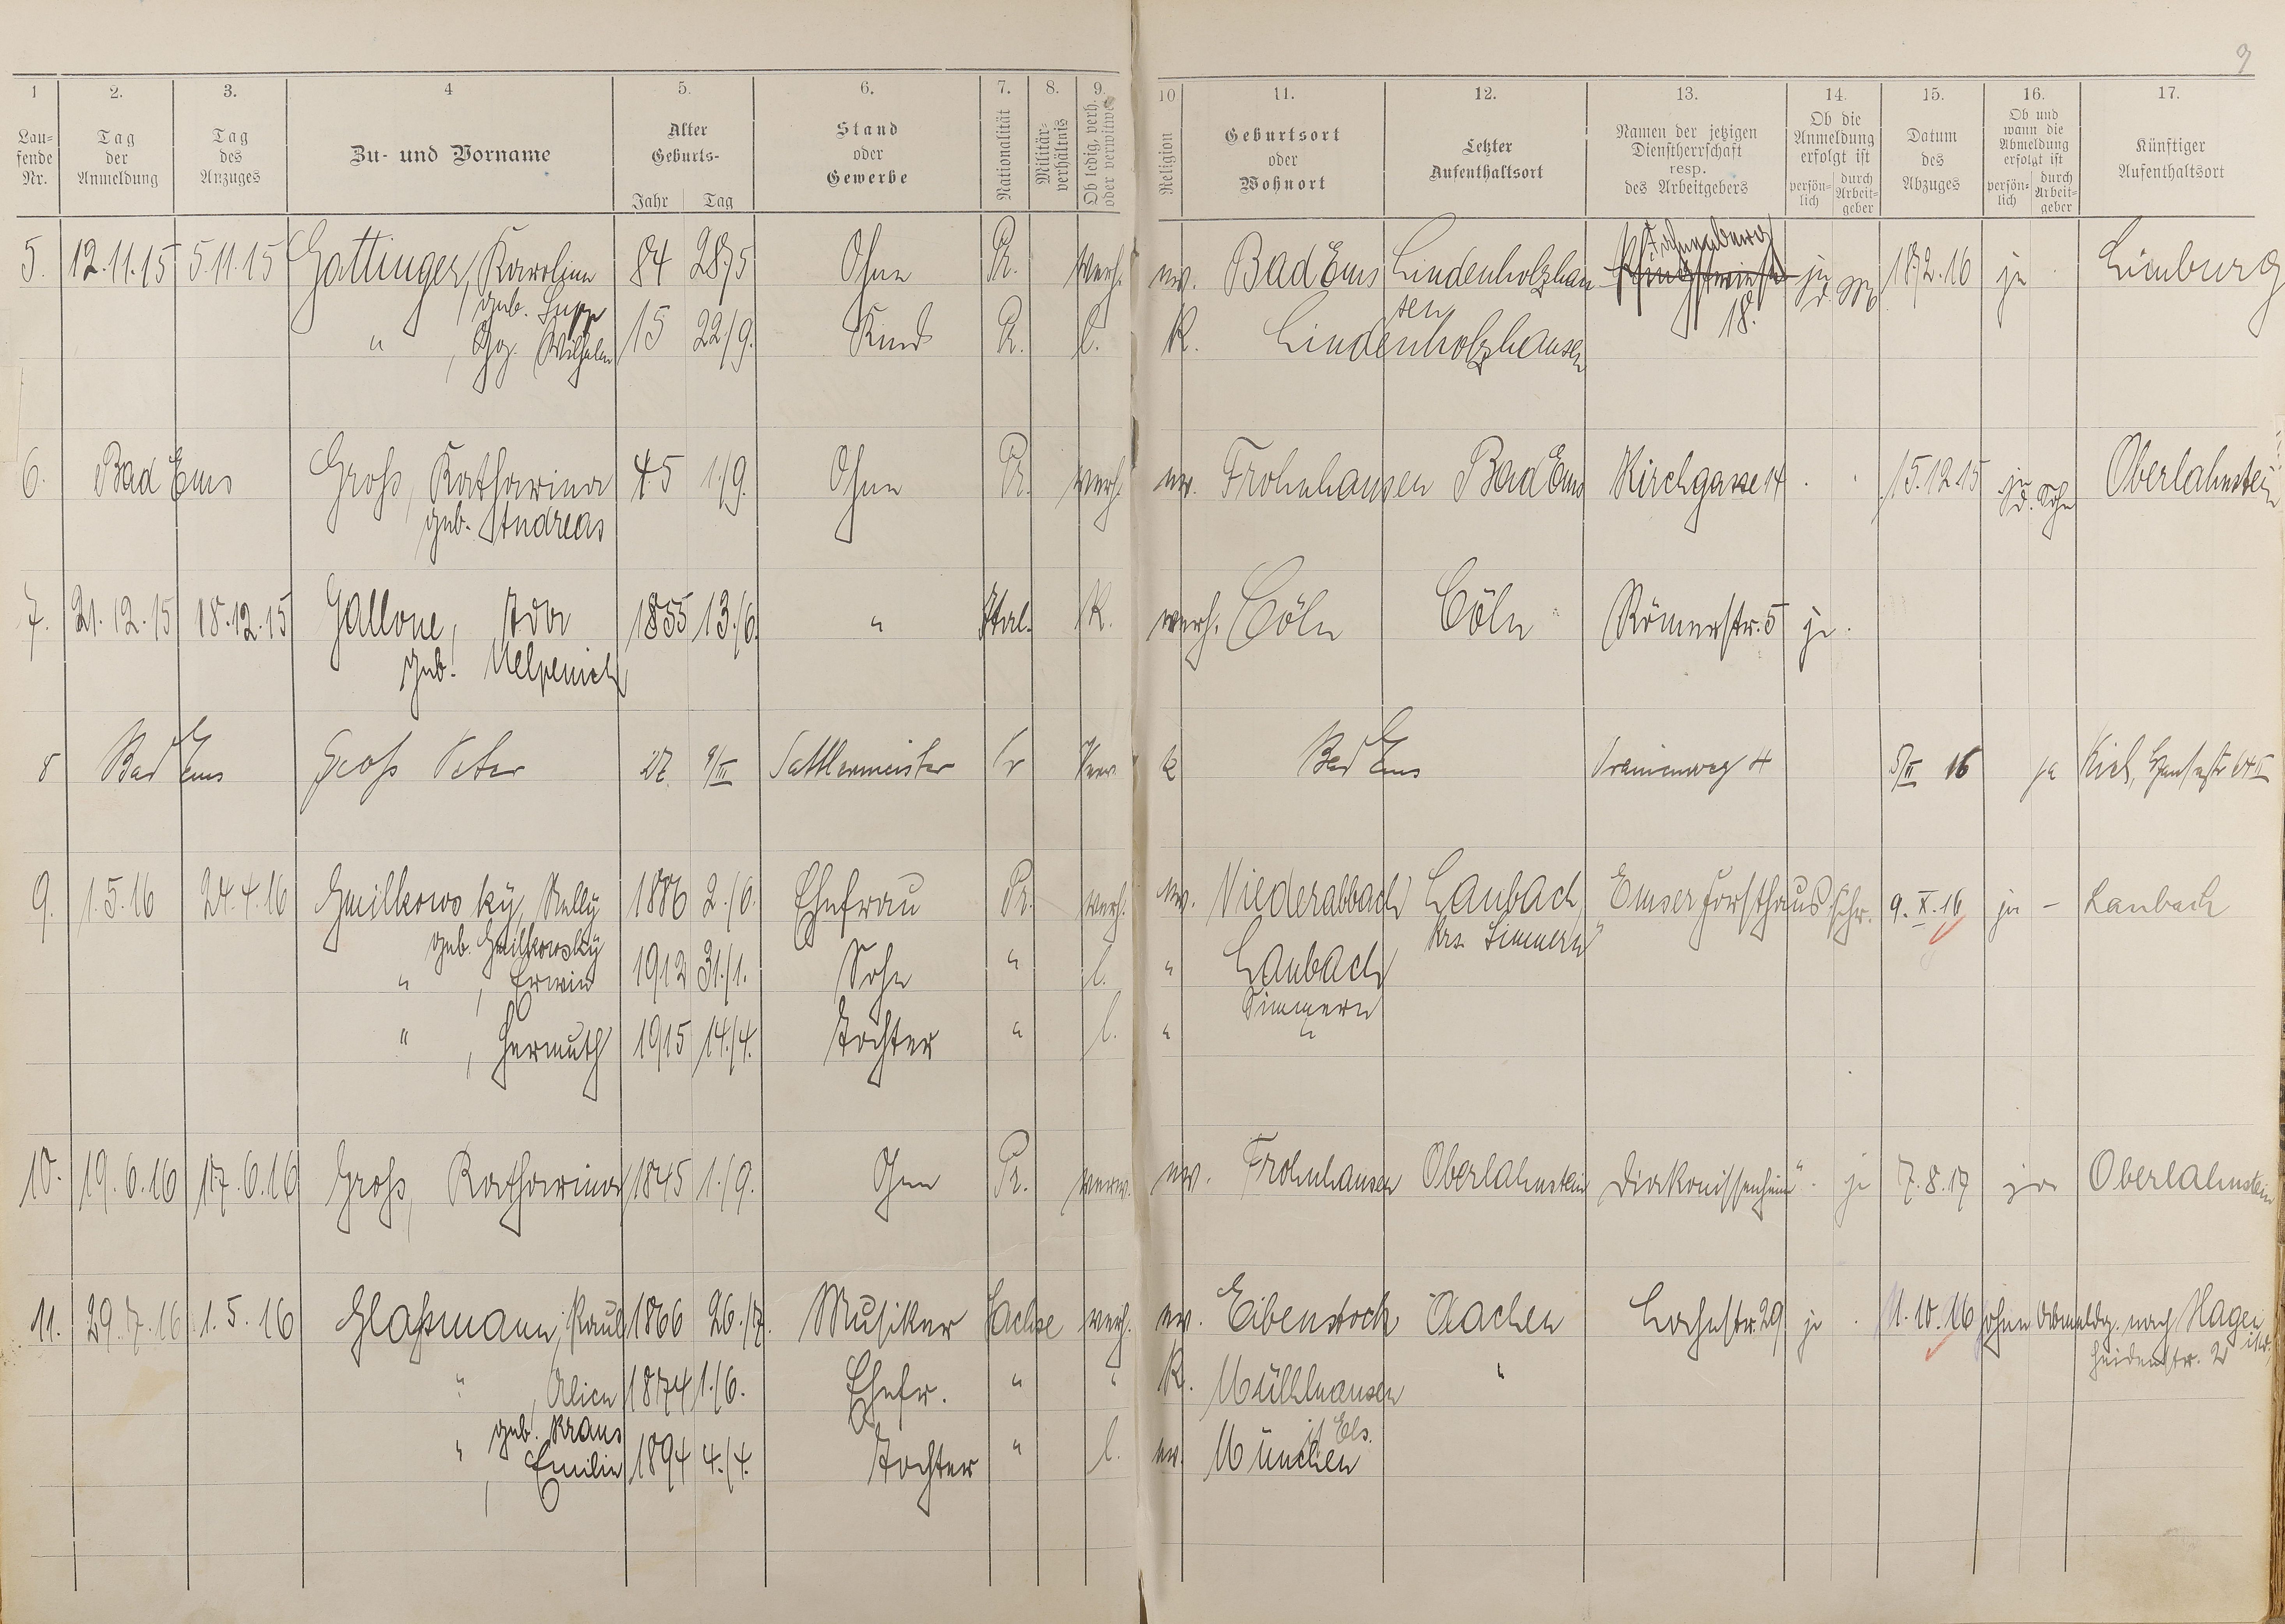 9
1 2. 3. 4 5. 6. 7. 8. 9. 10 11. 12. 13. 14. 15. 16. 17.
Lau=
fende
Nr.
Tag
der
Anmeldung
Tag
des
Anzuges
Zu- und Vorname
Alter
Geburts-
Jahr Tag
Stand
oder
Gewerbe
Nationalität
Militär-
verhältnis
Ob ledig, verh.
oder verwitwet
Religion
Geburtsort
oder
Wohnort
Letzter
Aufenthaltsort
Namen der jetzigen
Dienstherrschaft
resp.
des Arbeitgebers
Ob die
Anmeldung
erfolgt ist
persön-
lich
durch
Arbeit-
geber
Datum
des
Abzuges
Ob und
wann die
Abmeldung
erfolgt ist
persön-
lich
durch
Arbeit-
geber
Künftiger
Aufenthaltsort
5. 12.11.15 5.11.15 Gattinger, Karoline 84 28/5 Ohne Pr. verh. ev. Bad Ems Lindenholzhau ja 18.2.16 ja Limburg
geb. sen 18.
" , Wilhelm 15 22/9. Kind Pr. l. K. Lindenholzhausen
6. Bad Ems Groß, Katharina 45 1./9. Ohne Pr. verh. ev. Frohnhausen Bad Ems Kirchgasse 14 15.12.15 ja Oberlahnstein
geb. Andreas
7. 21.12.15 18.12.15 Gallone, Ida 1855 13./6. " Ital. K. verh. Cöln Cöln Römerstr. 5 ja.
geb. Uelpenich
8 Bad Ems Groß Peter 9/III Sattlermeister Pr K Bad Ems 4 5/II 16 ja Kiel, 64 II
9. 1.5.16 24.4.16 Gmilkowsky, Nelly 1886 2./6. Ehefrau Pr. verh. ev. Laubach "Emser Forsthaus" 9.X.16 ja - Laubach
geb. Gmilkowsky Krs. Simmern
" , Erwin 1912 31./1. Sohn " l. " Laubach
Simmern
" , Hermuth 1915 14./4. Tochter " l. " "
10. 19.6.16 17.6.16 Groß, Katharina 1845 1./9. Ohne Pr. verw. ev. Frohnhausen Oberlahnstein Diakonissenheim" . ja 7.8.17 ja Oberlahnstein
11. 29.7.16 1.5.16 Glaßmann, Paul 1866 26./7. Musiker Sachse verh. ev. Eibenstock Aachen Lahnstr. 29 ja . 11.10.16 ohne Abmeldg. nach Hagen
i.W., Heidenstr. 2
" , Alice 1874 1./6. Ehefr. " " K. Mülhausen "
geb. Kraus i/ Els.
" , Emilie 1894 4./4. Tochter " l. ev. München